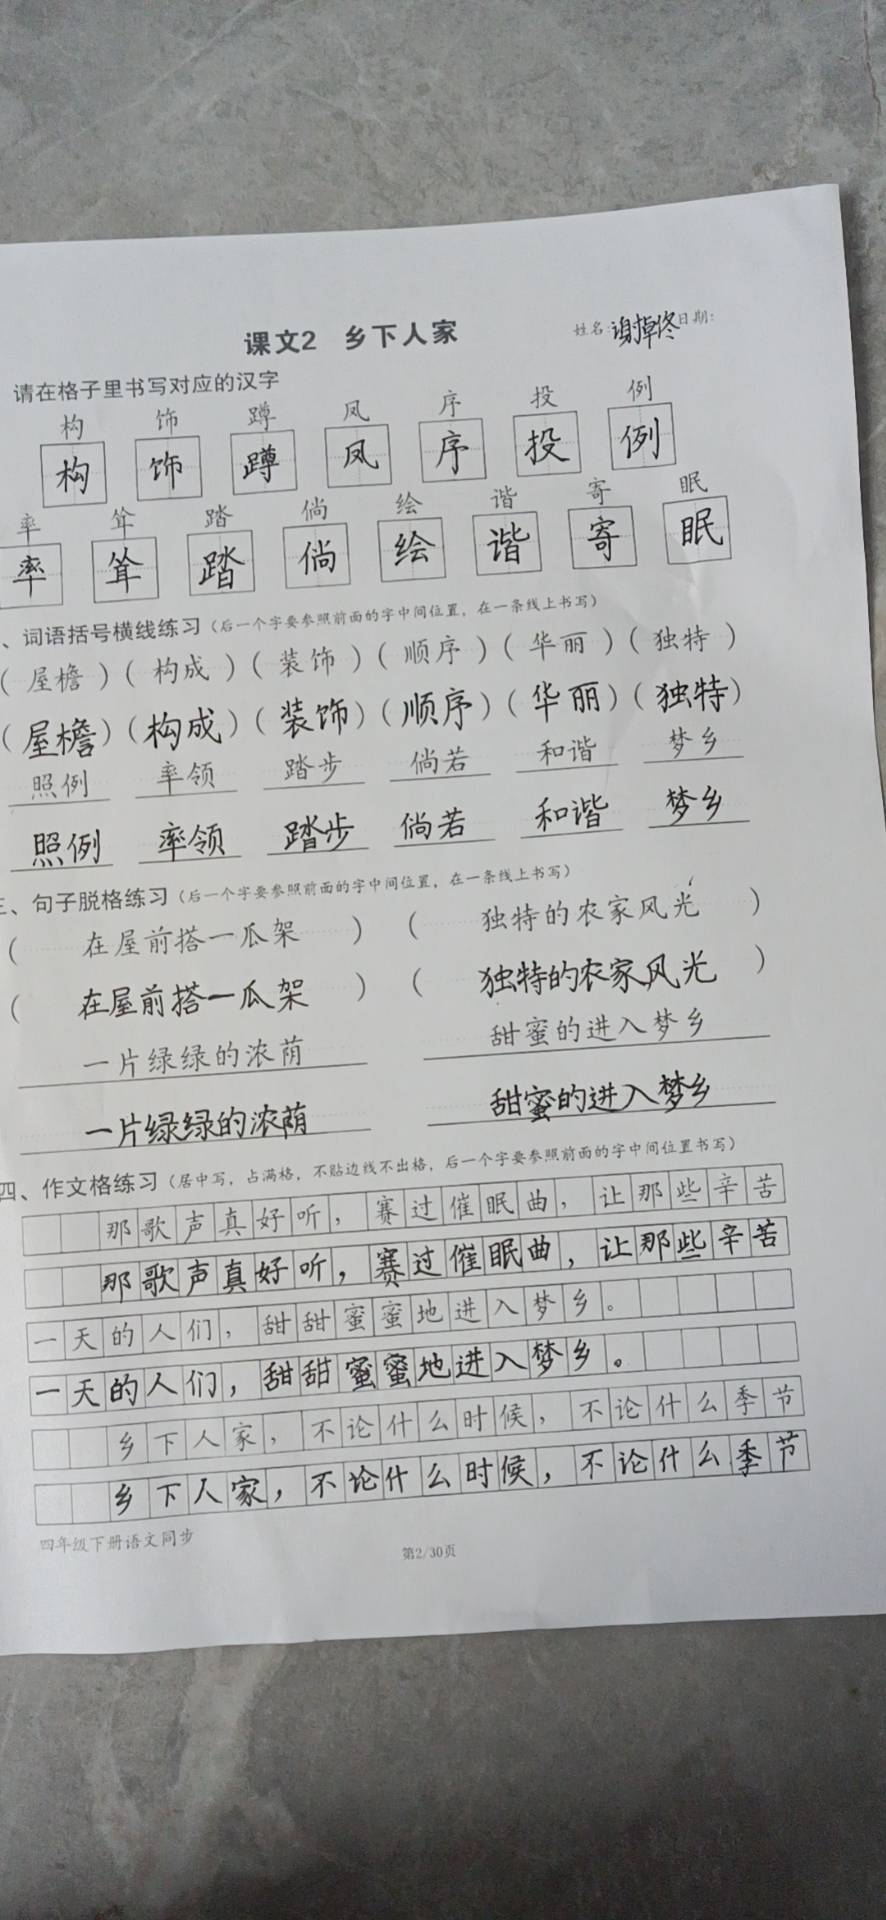 课文2 乡下人家 姓名: 谢掉佟 日期:
请在格子里书写对应的汉字
构 饰 蹲 凤 序 投 例
构 饰 蹲 凤 序 投 例
率 耸 踏 倘 绘 谐 寄 眠
率 耸 踏 倘 绘 谐 寄 眠
、词语括号横线练习（后一个字要参照前面的字中间位置，在一条线上书写）
（屋檐）（构成）（装饰）（顺序）（华丽）（独特）
（屋檐）（构成）（装饰）（顺序）（华丽）（独特）
照例 率领 踏步 倘若 和谐 梦乡
照例 率领 踏步 倘若 和谐 梦乡
三、句子脱格练习（后一个字要参照前面的字中间位置，在一条线上书写）
（ 在屋前搭一瓜架 ）（ 独特的农家风光 ）
（ 在屋前搭一瓜架 ）（ 独特的农家风光 ）
一片绿绿的浓荫 甜蜜的进入梦乡
一片绿绿的浓荫 甜蜜的进入梦乡
四、作文格练习（居中写，占满格，不贴边线不出格，后一个字要参照前面的字中间位置书写）
那歌声真好听，赛过催眠曲，让那些辛苦
那歌声真好听，赛过催眠曲，让那些辛苦
一天的人们，甜甜蜜蜜地进入梦乡。
一天的人们，甜甜蜜蜜地进入梦乡。
乡下人家，不论什么时候，不论什么季节
乡下人家，不论什么时候，不论什么季节
四年级下册语文同步 第2/30页